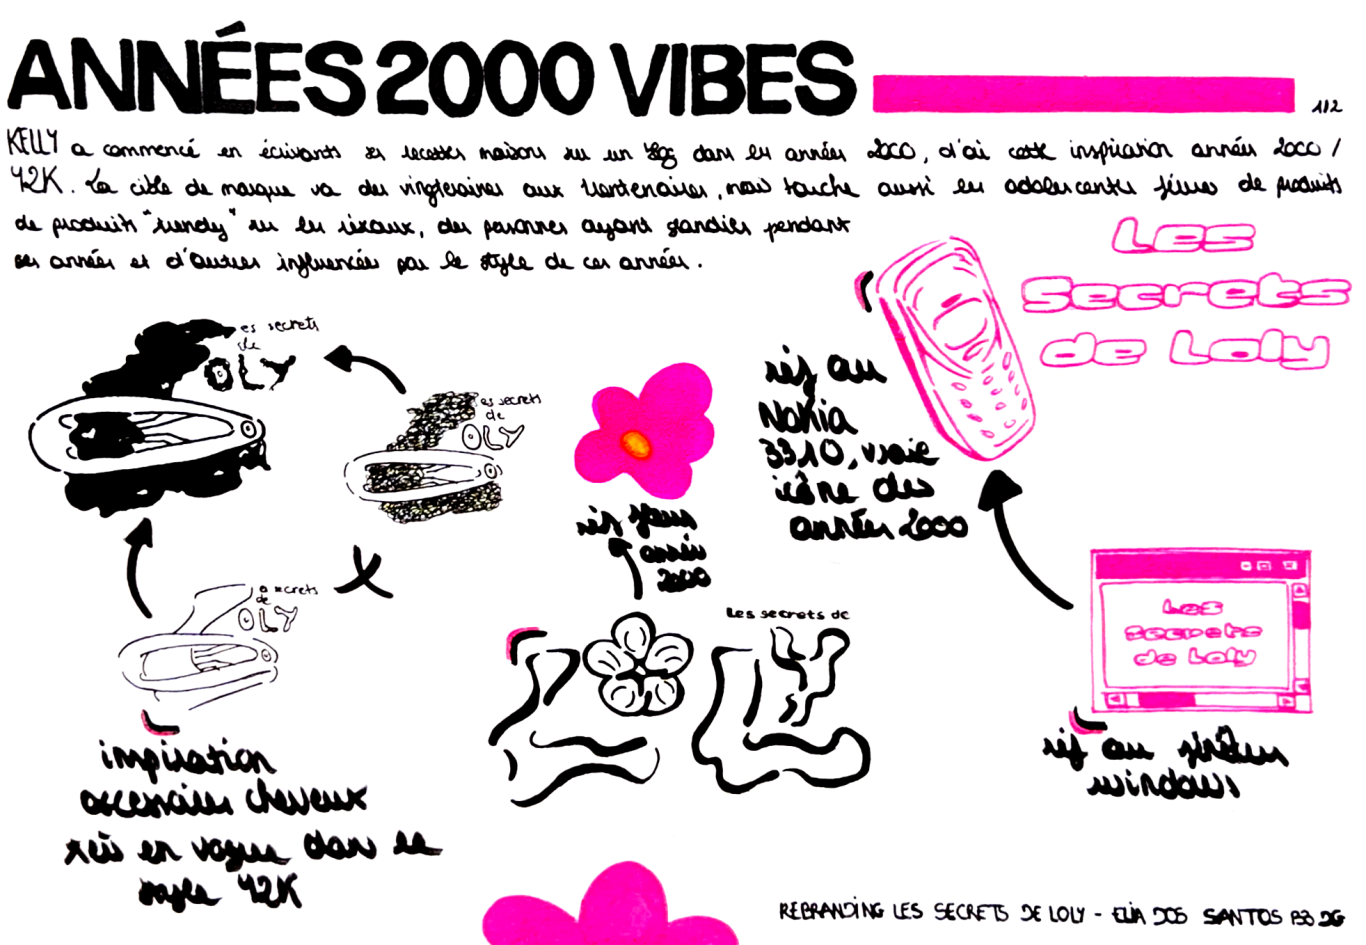 ANNÉES 2000 VIBES
1/2
KELLY a commencé en écrivants ses recettes maisons sur un blog dans les années 2000, d'où cette inspiration années 2000 /
Y2K. La cible de marque va des vingtenaires aux trentenaires, mais touche aussi les adolescentes férues de produits
de produits "trendy" sur les réseaux, des personnes ayant grandies pendant
ses années et d'autres influencées par le style de ces années.
Les
Secrets
de Loly
es secrets
de
OLY
es secrets
de
OLY
réf au
Nokia
3310, vraie
icône des
années 2000
réf fleurs
années
2000
secrets
de
OLY
Les secrets de
Les
Secrets
de Loly
inspiration
accessoires cheveux
très en vogue dans le
style Y2K
réf au fenêtres
windows
REBRANDING LES SECRETS DE LOLY - ELIA DOS SANTOS B3 DG